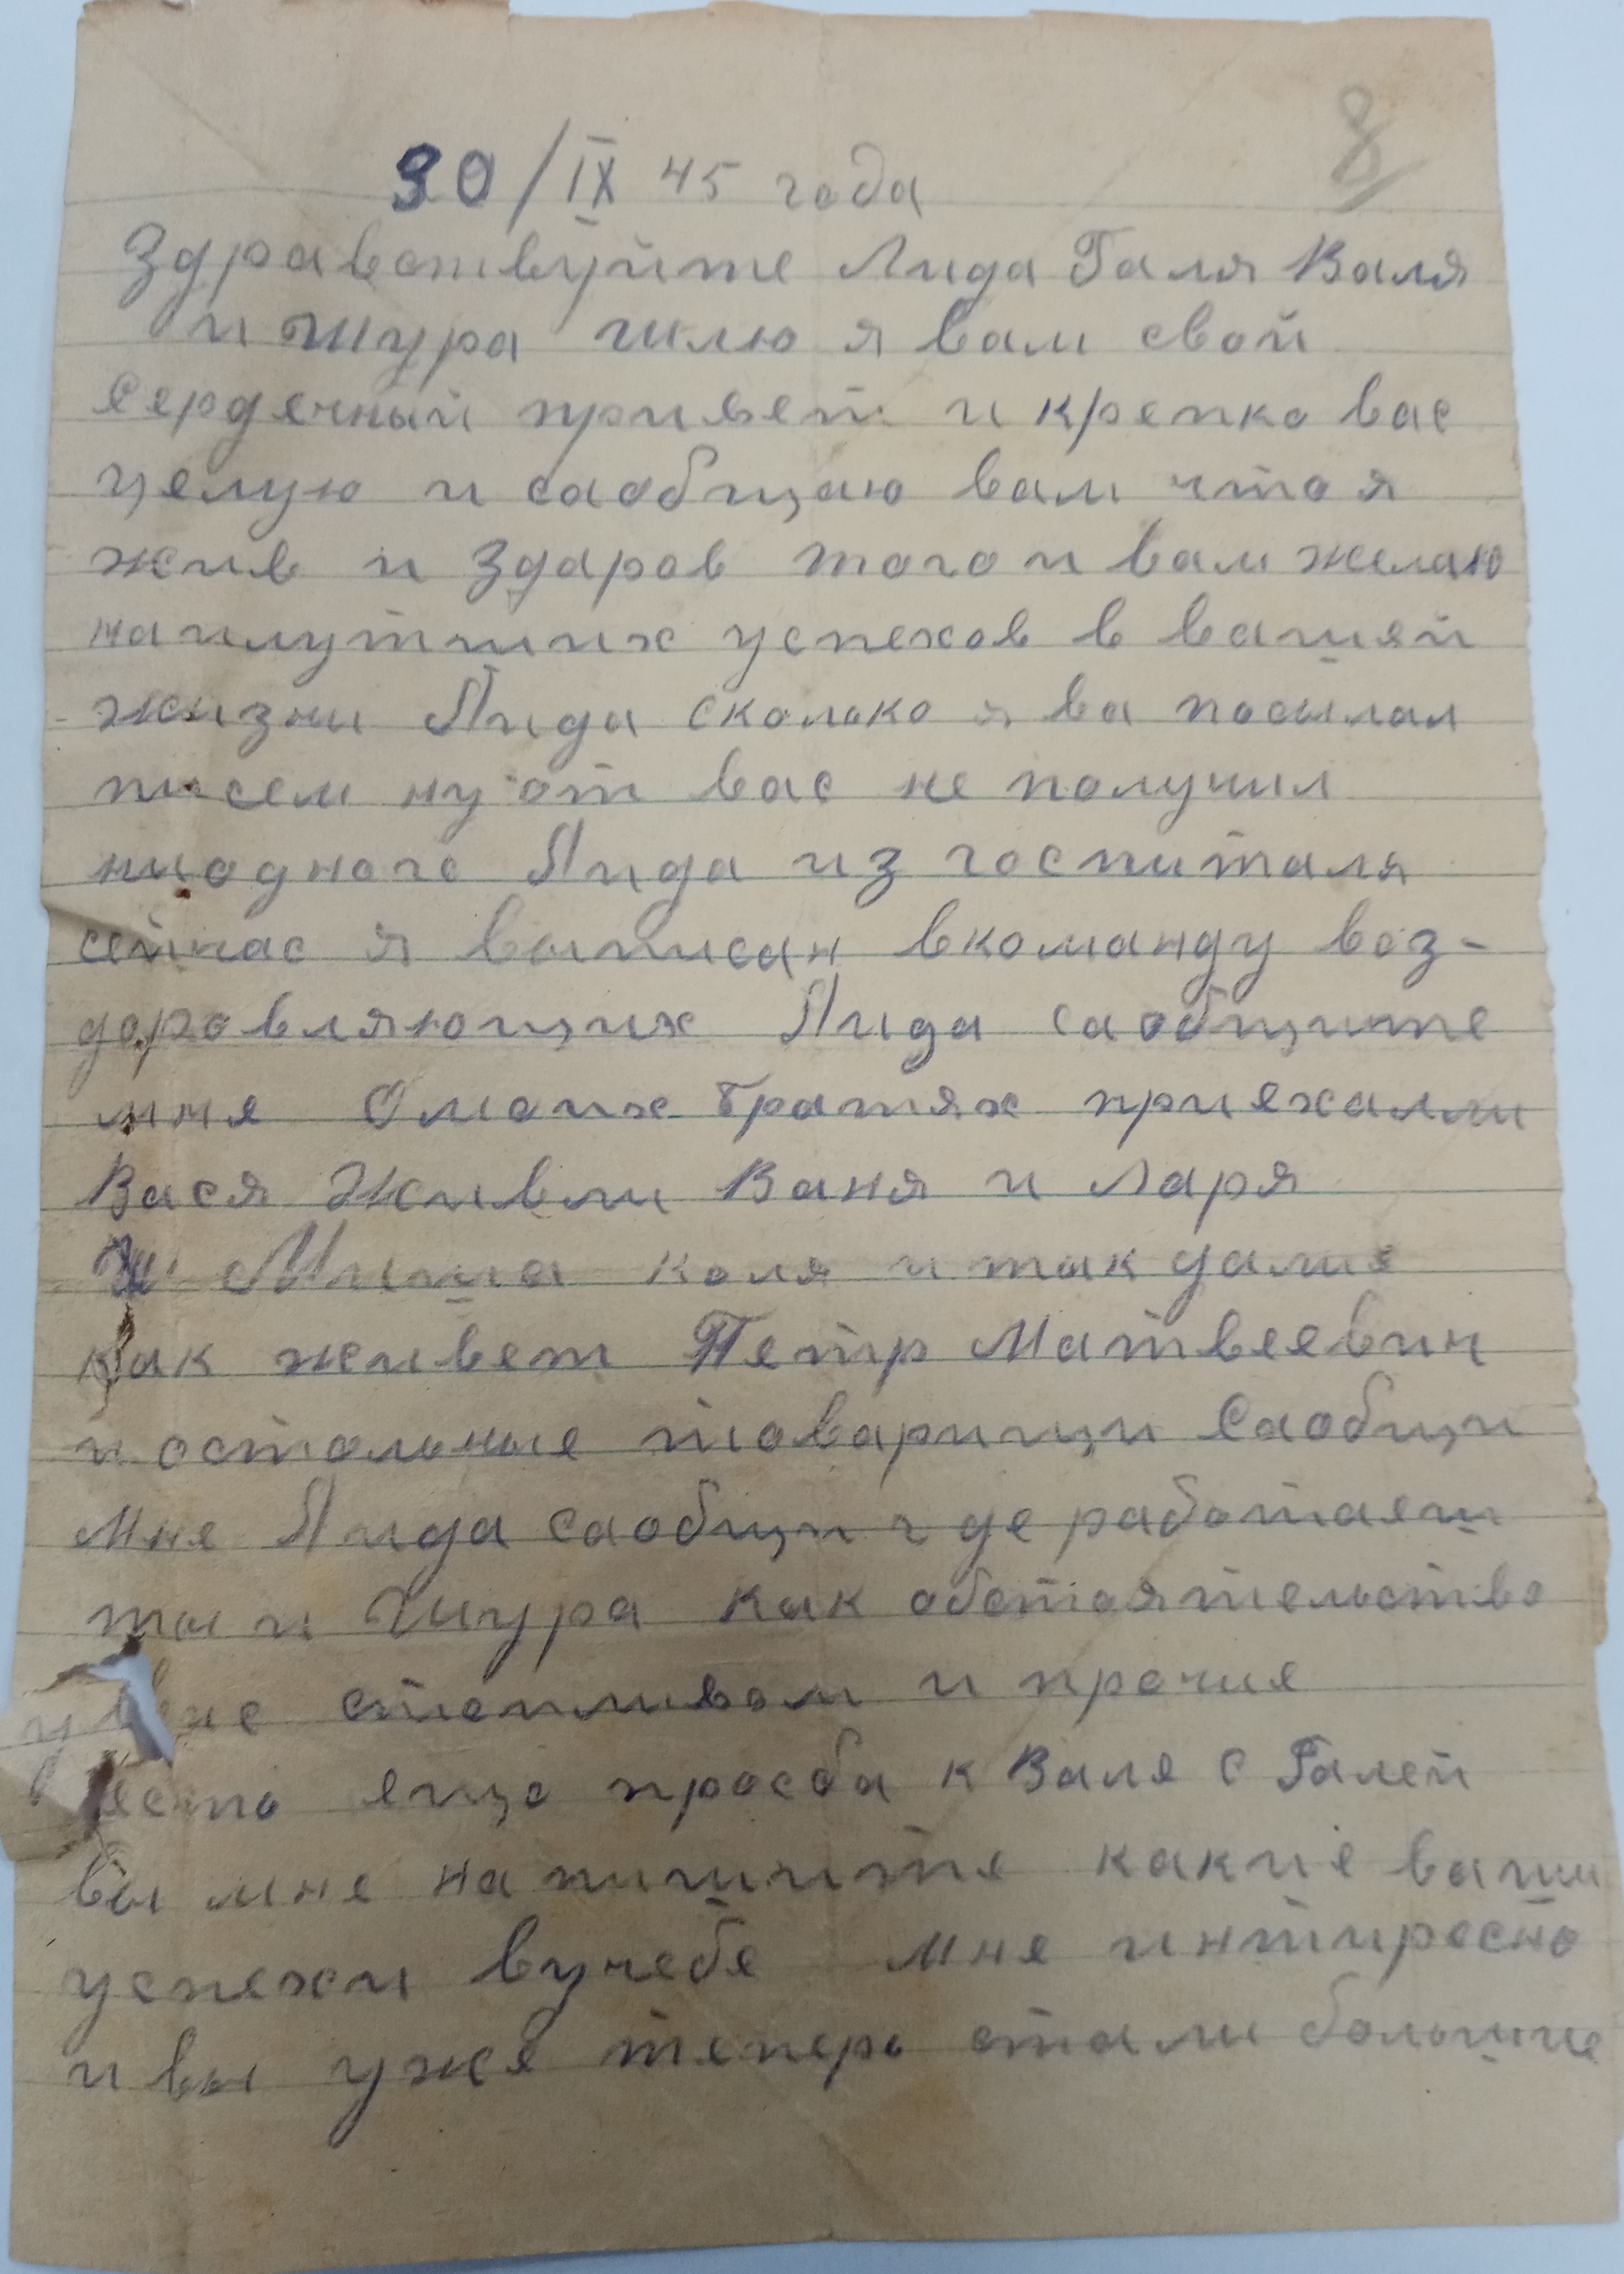 8
30/IX 45 года
Здравствуйте Лида Галя Валя
и Шура шлю я вам свой
сердечный привет и крепко вас
целую и саобщаю вам что я
жив и здаров того и вам желаю
наилутших успехов в вашей
жизни Лида сколько я ва посылал
писем ну от вас не получил
ниодного Лида из госпиталя
сейчас я выписан вкоманду воз-
доровляющих Лида саобщите
мня О моих братях приехалли
Вася Живли Ваня и Ларя
Миша коля и так далие
как живет Петр Матвеевич
и остальные товарищи Саобщи
Мне Лида саобщи где работаеш
ты и Шура как обстоятельство
у вас стопливом и прочие
есть ещо прозба к Вале с Галей
вы мне напишите какие ваши
успехи вучебе мне интиресно
и вы уже теперь стали большие